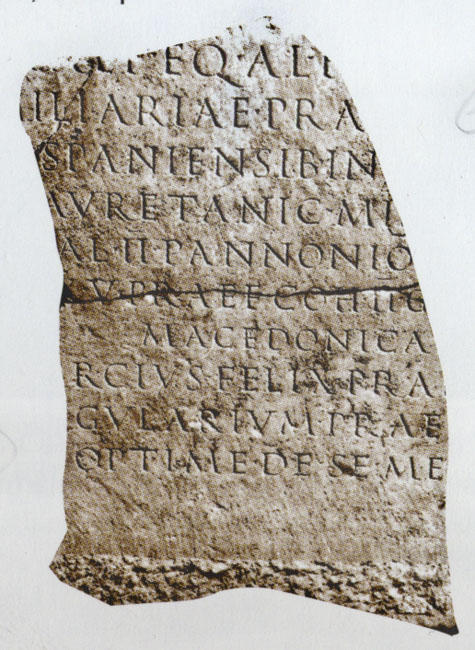 EQ·AL·I
ILIARIAE·PRA
SPANIENSIBIN
AVRETANIC·MI
AL·II·PANNONIO
V·PRAEF·COH·II·G
MACEDONICA
RCIVS·FELIX·PRA
GVLARIVM·PRAE
OPTIME·DE·SE·ME